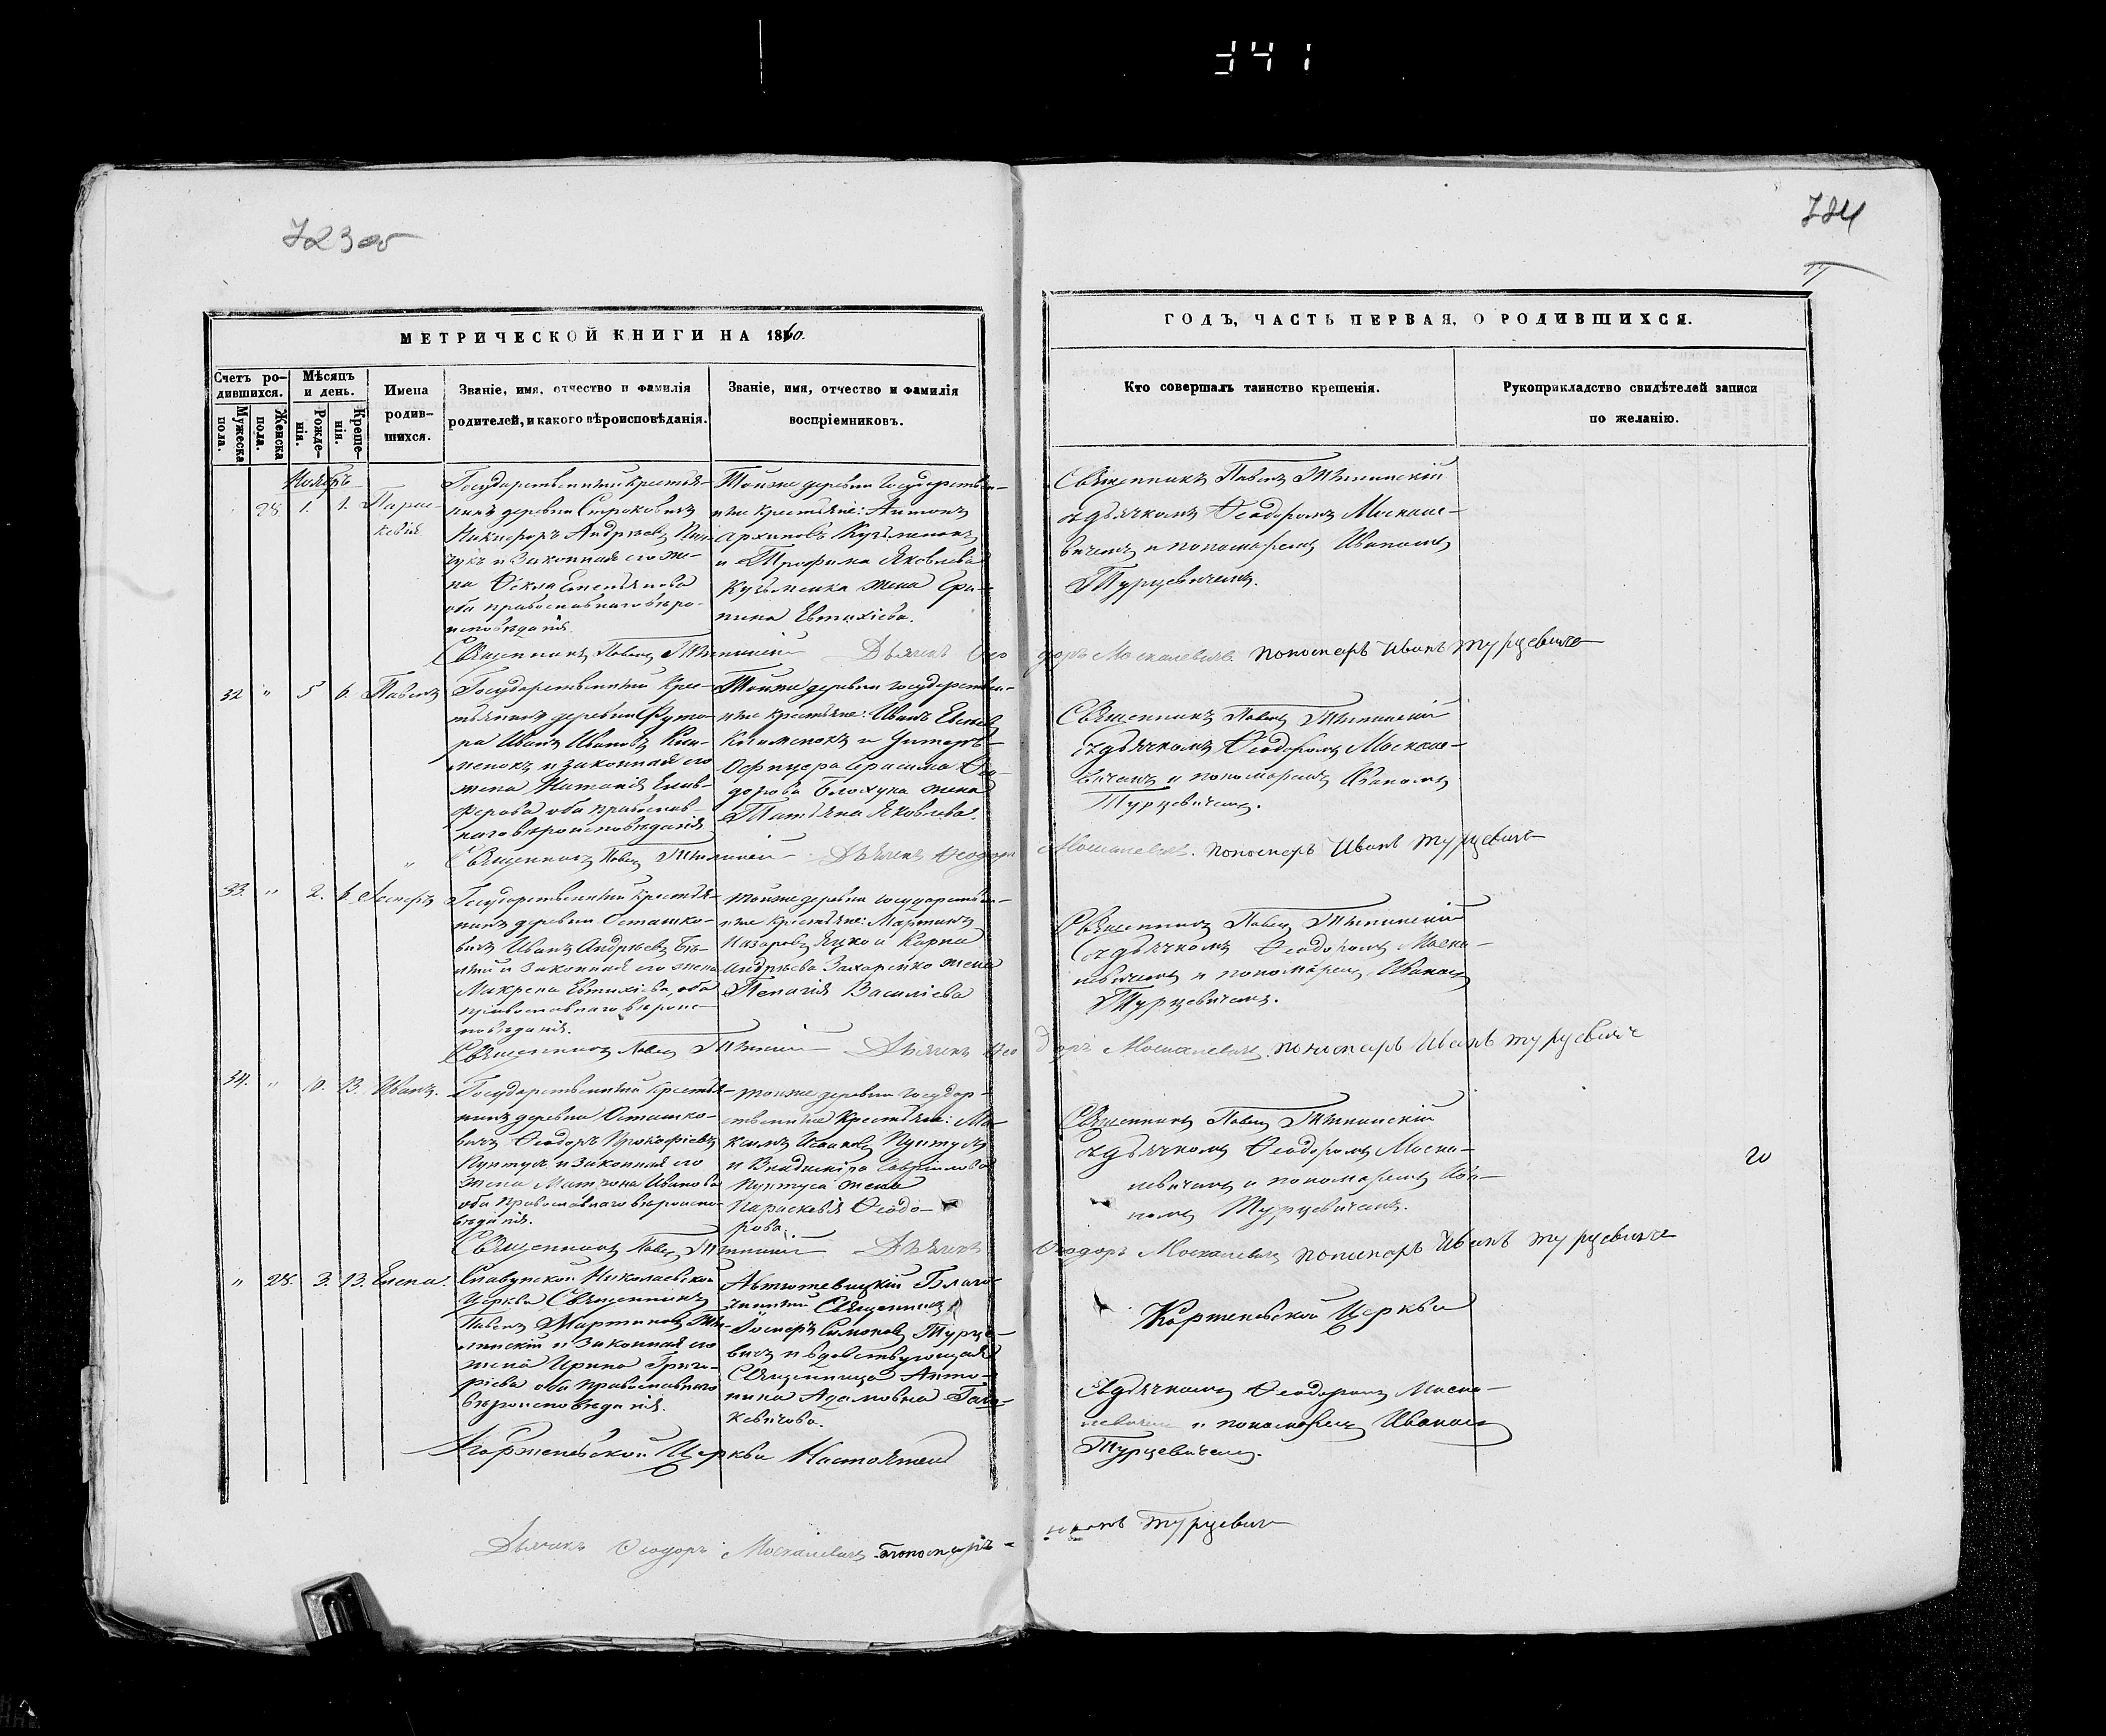 341
723 об
724
МЕТРИЧЕСКОЙ КНИГИ НА 1860.
Счетъ родившихся.
Мужеска пола.
Женска пола.
Мѣсяцъ и день.
Рожденія.
Крещенія.
Имена родившихся.
Званіе, имя, отчество и фамилія
родителей, и какого вѣроисповѣданія.
Званіе, имя, отчество и фамилія
воспріемниковъ.
ГОДЪ, ЧАСТЬ ПЕРВАЯ, О РОДИВШИХСЯ.
Кто совершалъ таинство крещенія.
Рукоприкладство свидѣтелей записи
по желанію.
Ноябрь
28 1. 1. Парас-
кевія
Государственный крестья-
нинъ деревни
Никифоръ Андрѣевъ
и законная его же-
на Ѳекла Емельянова
оба православнаго вѣро-
исповѣданія
Тойже деревни государствен-
ные крестьяне: Антонъ
Архиповъ Кузьменокъ
и Трофима Яковлева
Кузьменка жена
Евтихіева.
Священникъ Павелъ
съ дьячкомъ Ѳеодоромъ Москале-
вичемъ и пономаремъ Иваномъ
Турцевичемъ.
Священникъ Павелъ Дьячекъ Ѳео
доръ Москалевичъ пономарь Иванъ Турцевичъ
32 " 5 6. Павелъ
Государственный крес-
тьянинъ деревни Хуто-
ра Иванъ Ивановъ Кли-
менокъ и законная его
жена
оба православ-
наго вѣроисповѣданія
Тойже деревни государствен-
ные крестьяне: Иванъ
Клименокъ и Унтеръ-
Офицера Герасима Ѳео-
дорова жена
Татьяна Яковлева.
Священникъ Павелъ
съ дьячкомъ Ѳеодоромъ Москале-
вичемъ и пономаремъ Иваномъ
Турцевичемъ.
Священникъ Павелъ Дьячекъ Ѳеодоръ
Москалевичъ. пономарь Иванъ Турцевичъ
33. " 2. 6. Іосифъ
Государственный крестья-
нинъ деревни Осташко-
вичъ Иванъ Андрѣевъ
и законная его жена
Макрена Евтихіева, оба
православнаго вѣроис-
повѣданія.
тойже деревни государствен-
ные крестьяне: Мартинъ
Назаровъ Яцко и Карпа
Андрѣева Захаренко жена
Пелагія Василіева
Священникъ Павелъ
съ дьячкомъ Ѳеодоромъ Моска-
левичемъ и пономаремъ Иваномъ
Турцевичемъ.
Священникъ Павелъ Дьячекъ Ѳео
доръ Москалевичъ. пономарь Иванъ Турцевичъ
34. " 10. 13. Иванъ.
Государственный крестья-
нинъ деревни Осташко-
вичъ Ѳеодоръ Прокофіевъ
Пунтусъ и законная его
жена Матрона Иванова
оба православнаго вѣроиспо-
вѣданія.
тойже деревни государ-
ственные крестьяне: Ма-
Пунтусъ
и Владиміра Гавріилова
Пунтуса жена
Параскевія Ѳеодо-
рова.
Священникъ Павелъ
съ дьячкомъ Ѳеодоромъ Моска-
левичемъ и пономаремъ Ива-
номъ Турцевичемъ.
20
Священникъ Павелъ Дьячекъ
Ѳеодоръ Москалевичъ пономарь Иванъ Турцевичъ
" 28. 3. 13. Елена.
Николаевской
Церкви Священникъ
Павелъ Мартиновъ
и законная его
жена Ирина Григо-
ріева оба православнаго
вѣроисповѣданія.
Благо-
чинный Священникъ
Іосифъ Симоновъ Турце-
вичъ и вдовствующая
Священница Анто-
нина Адамовна
Корженевской Церкви
съ дьячкомъ Ѳеодоромъ Моска-
левичемъ и пономаремъ Иваномъ
Турцевичемъ.
Корженевской Церкви Настоятель
Дьячекъ Ѳеодоръ Москалевичъ пономарь
Иванъ Турцевичъ